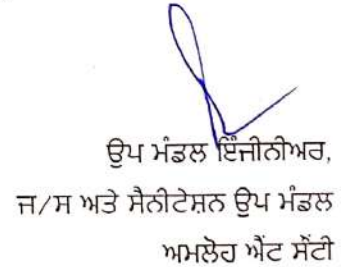 ਉਪ ਮੰਡਲ ਇੰਜੀਨੀਅਰ,
ਜ/ਸ ਅਤੇ ਸੈਨੀਟੇਸ਼ਨ ਉਪ ਮੰਡਲ
ਅਮਲੋਹ ਐਂਟ ਸੰੈਟੀ